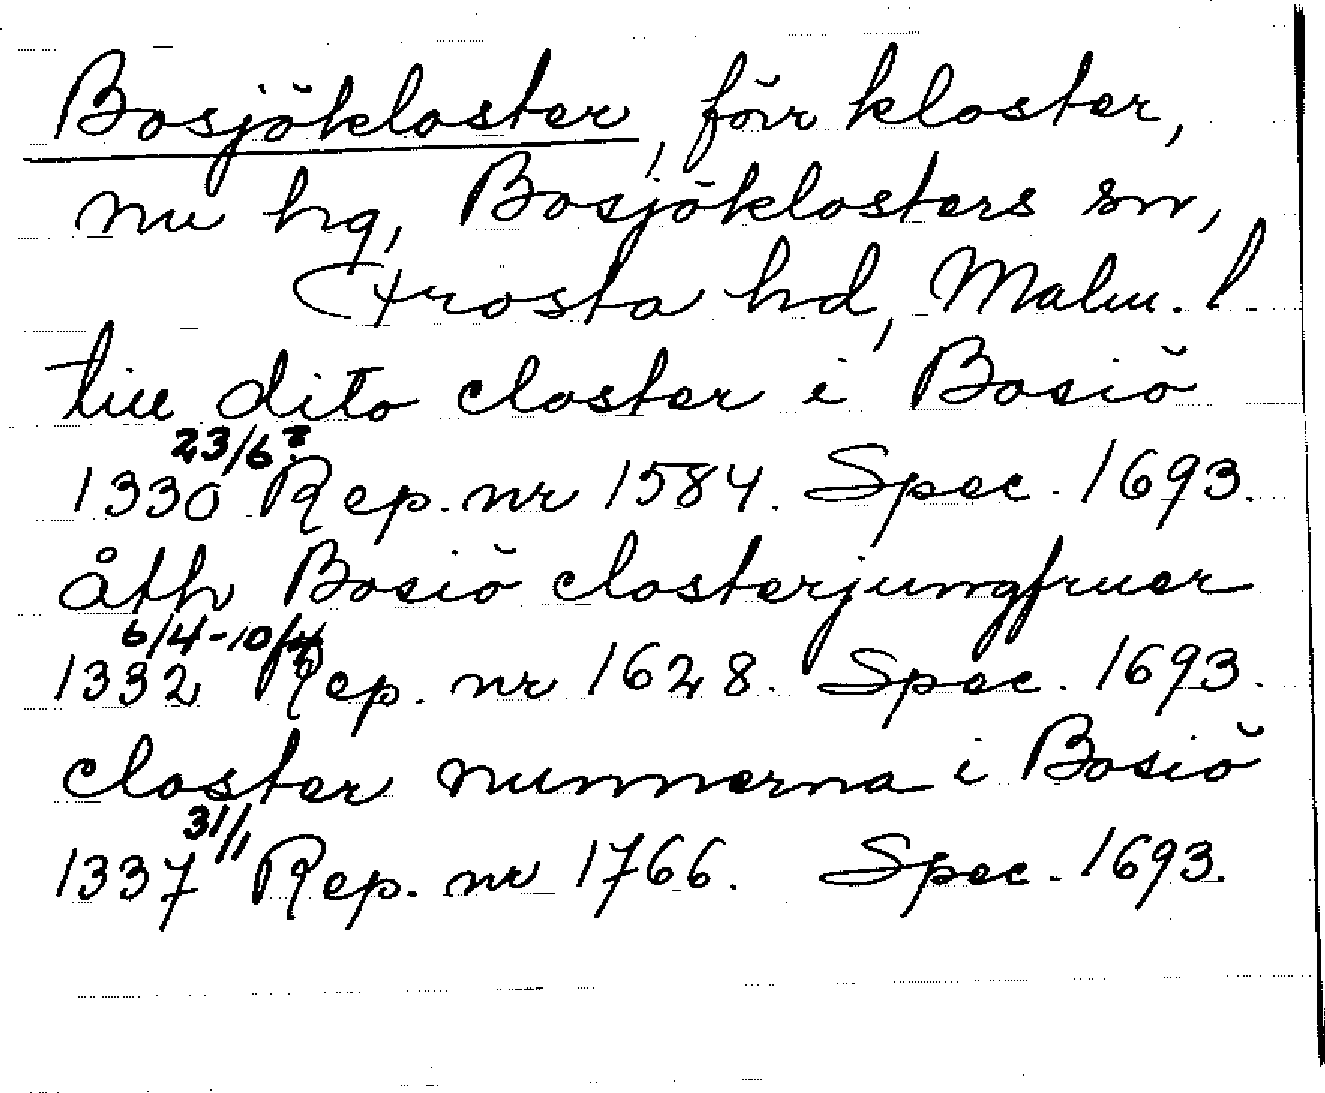 Bosjökloster, förr kloster,
nu hg, Bosjöklosters sn,
Frosta hd, Malm. l
till dito closter i Bosiö
1330 23/6? Rep. nr 1584. Spec. 1693.
åth Bosiö closterjungfruer
1332 6/4-10/4 Rep. nr 1628. Spec. 1693.
closter nunnerna i Bosiö
1337 31/1 Rep. nr 1766. Spec. 1693.